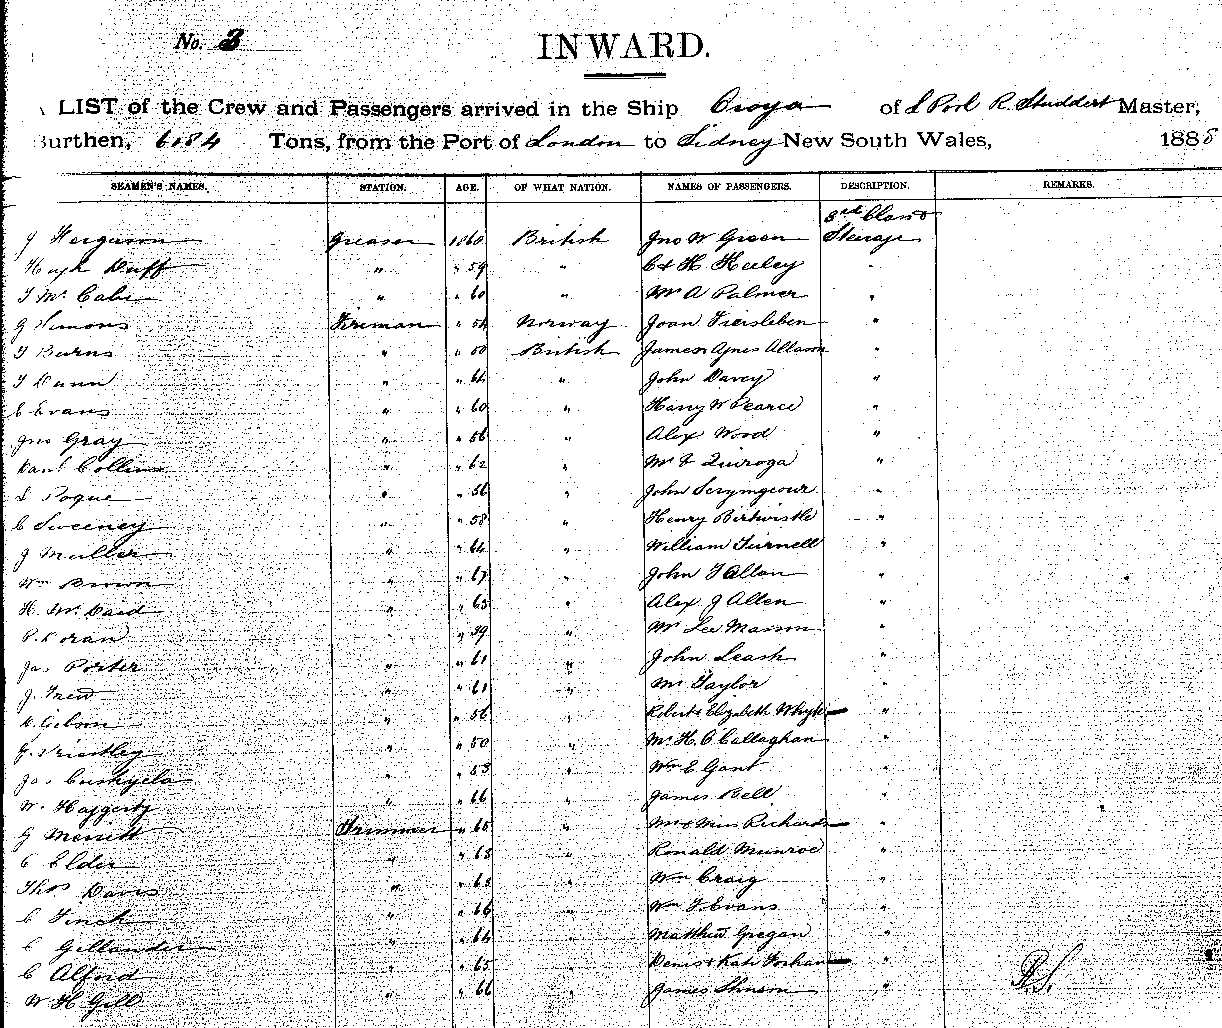 No. 3
INWARD.
LIST of the Crew and Passengers arrived in the Ship Oroya of L Pool R. Studdert Master,
Burthen, 6184 Tons, from the Port of London to Sidney New South Wales, 1888
SEAMEN'S NAMES. STATION. AGE. OF WHAT NATION. NAMES OF PASSENGERS. DESCRIPTION. REMARKS.
3rd Class
J Ferguson Greaser 1860 British Jno W Green Steerage
Hugh Duff " " 59 " C & H. Keeley "
T Mc Cabe " " 60 " Mr A Palmer "
G Simons Fireman " 54 Norway Joan Fiersleben "
T Burns " " 50 British James & Agnes Allason "
T Dunn " " 64 " John Davey "
C Evans " " 60 " Harry W Pearce "
Jno Gray " " 56 " Alex Wood "
Danl Collins " " 62 " Mr F Quiroga "
L Pogue " " 56 " John Scrymgeour "
C Sweeney " " 58 " Henry Birtwistle "
J Muller " " 64 " William Turnell "
Wm Brown " 67 " John T Allan "
H. Mc Caid " " 63 " Alex J Allen "
P. Doran " 39 " Mr Lee Masson "
Jas Porter " " 61 " John Leash "
J. Trew " " 61 " Mr Taylor "
Gibson " " 56 " Robert & Elizabeth Whyte "
J. Priestley " " 50 " Mr H. O'Callaghan "
Jas " " 53 " Wm E Gant "
W. Haggerty " 66 " James Bell "
G Merritt Trimmer " 65 " Mr & Mrs Richards "
C Elder " " 63 " Ronald Munroe "
Thos Davis " " 63 " Wm Craig "
C Finch " " 66 " Wm T Evans "
C Gillander " " 64 " Matthew Gregan "
C Alford " " 65 " Denis & Kate Forhan "
W H Gill " " 66 " James Stinson "
R.S.